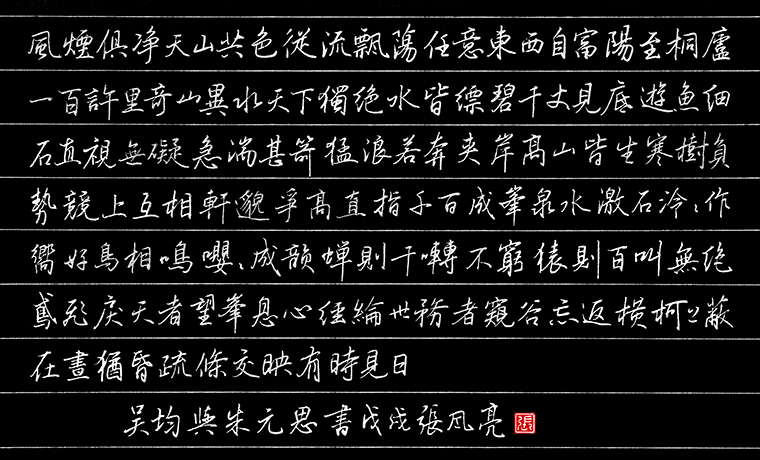 風煙俱净天山共色從流飄蕩任意東西自富陽至桐廬
一百許里奇山異水天下獨绝水皆縹碧千丈見底遊魚细
石直視無礙急湍甚箭猛浪若奔夹岸髙山皆生寒樹負
勢競上互相軒邈爭髙直指千百成峯泉水激石泠〻作
嚮好鳥相鳴嚶〻成韻蝉則千囀不窮猿則百叫無绝
鳶飛戾天者望峯息心经綸世務者窺谷忘返横柯上蔽
在晝猶昏疏條交映有時見日
吴均與朱元思書戊戌張凤亮
張